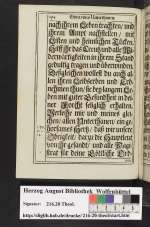 nach ihrem Leben trachten/ und
ihrem Ampt nachstellen / mit
Listen und heimlichen Tücken.
Hilff ihr das Creutz und alle Wi-
derwärtigkeiten in ihrem Stand
gedultig tragen und überwinden.
Desgleichen wollest du auch al-
len ihren Leibserben und Erb-
nehmen thun/ sie bey langem Le-
ben mit guter Gesundheit in dei-
ner Forcht seliglich erhalten.
Verleihe mir und meines glei-
chen/ allen Unterthanen/ ein ge-
horsames Hertz/ daß wir unsere
Obrigkeit/ darzu die Hauptleut
von ihr gesandt/ und alle Magi-
strat für deine Göttliche Ord-
Herzog August Bibliothek Wolfenbüttel
Signatur: 216.20 Theol.
http://diglib.hab.de/drucke/216-20-theol/start.htm